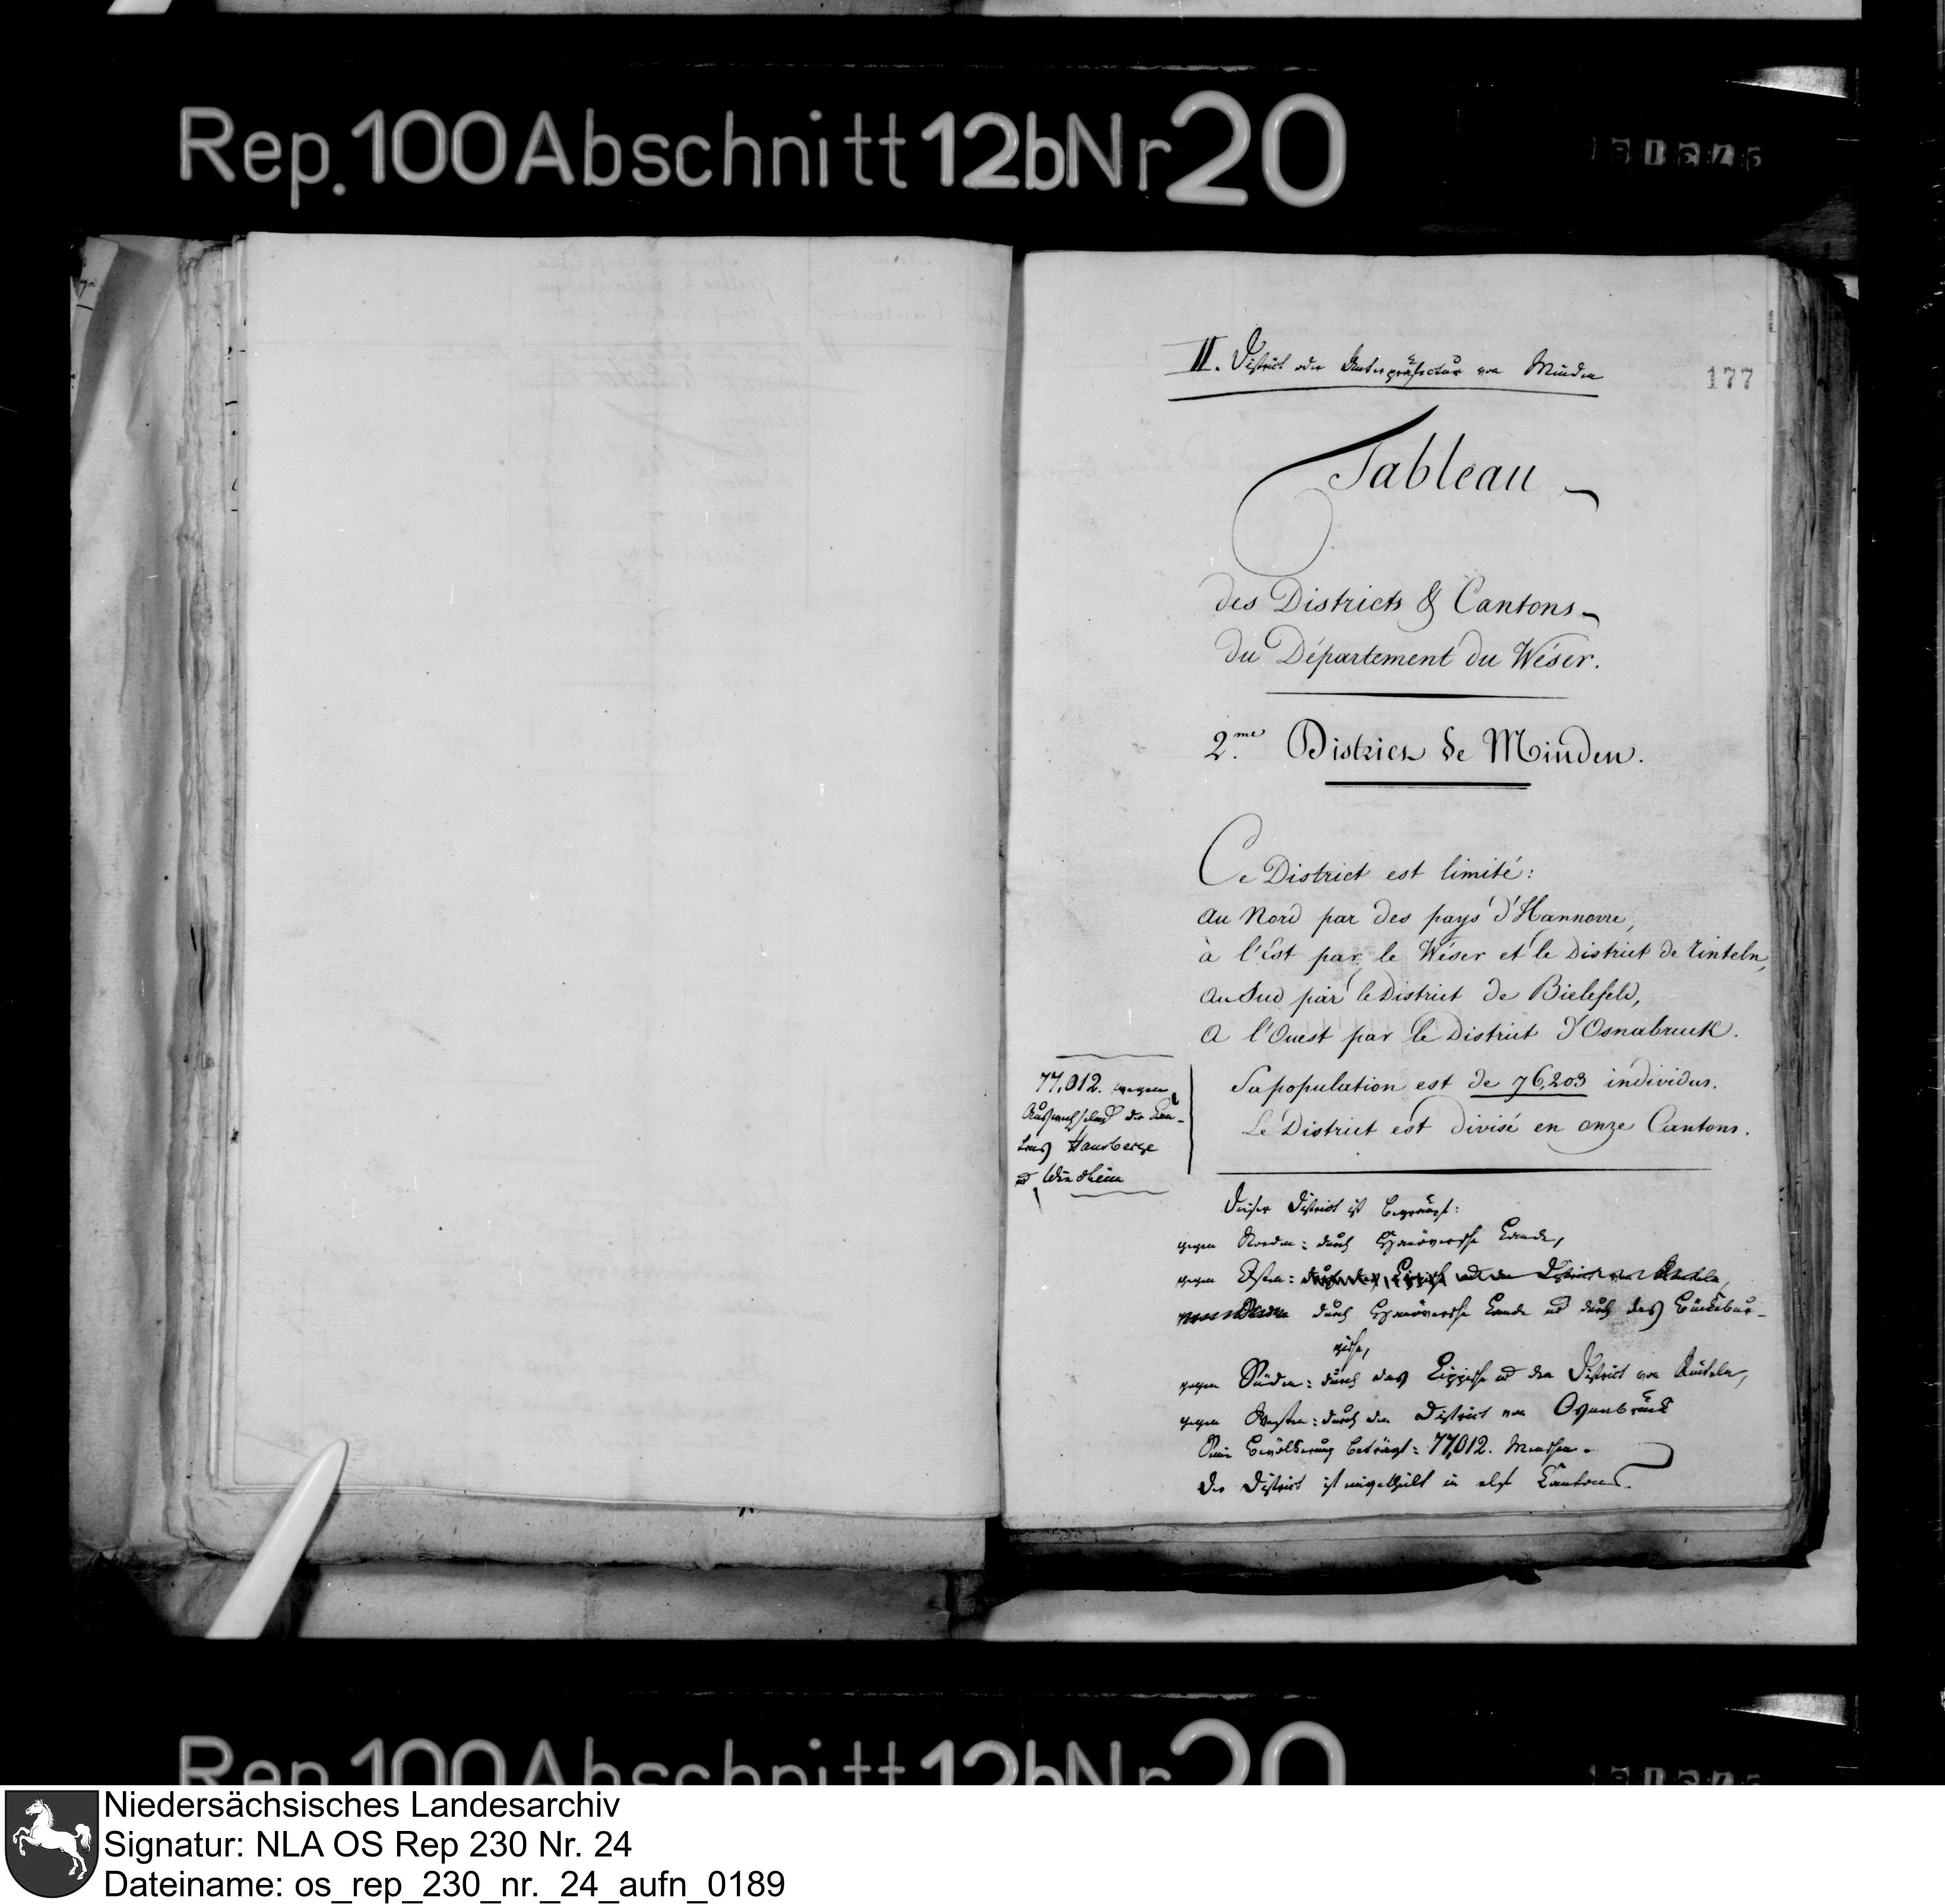 Rep. 100 Abschnitt 12b Nr 20
II. District oder Unterpräfectur von Minden
177
Tableau
des Districts & Cantons
du Département du Wéser.
2.me District de Minden.
Ce District est limité:
au Nord par des pays d'Hannovre,
à l'Est par le Wéser et le District de Rinteln,
au Sud par le District de Bielefeld,
a l'Ouest par le District d'Osnabruck.
Sa population est de 76,203 individus.
Le District est divisé en onze Cantons.
77,012. wegen
der Can-
tons Hausberge
u Windheim
Dieser District ist begränzt:
gegen Norden: durch Hanöversche Lande,
gegen Osten: durch das Lippische und den District von Rinteln,
durch Hanöversche Lande und durch das Bückebur-
gische,
gegen Süden: durch das Lippische u den District von Rinteln,
gegen Westen: durch den District von Osnabrück
Seine Bevölkerung beträgt: 77,012. Menschen.
Der District ist eingetheilt in elf Cantons.
Rep. 100 Abschnitt 12b Nr 20
Niedersächsisches Landesarchiv
Signatur: NLA OS Rep 230 Nr. 24
Dateiname: os_rep_230_nr._24_aufn_0189